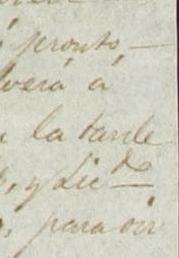 pronto,
verá á
la tarde
, y Lic.do
, para oir